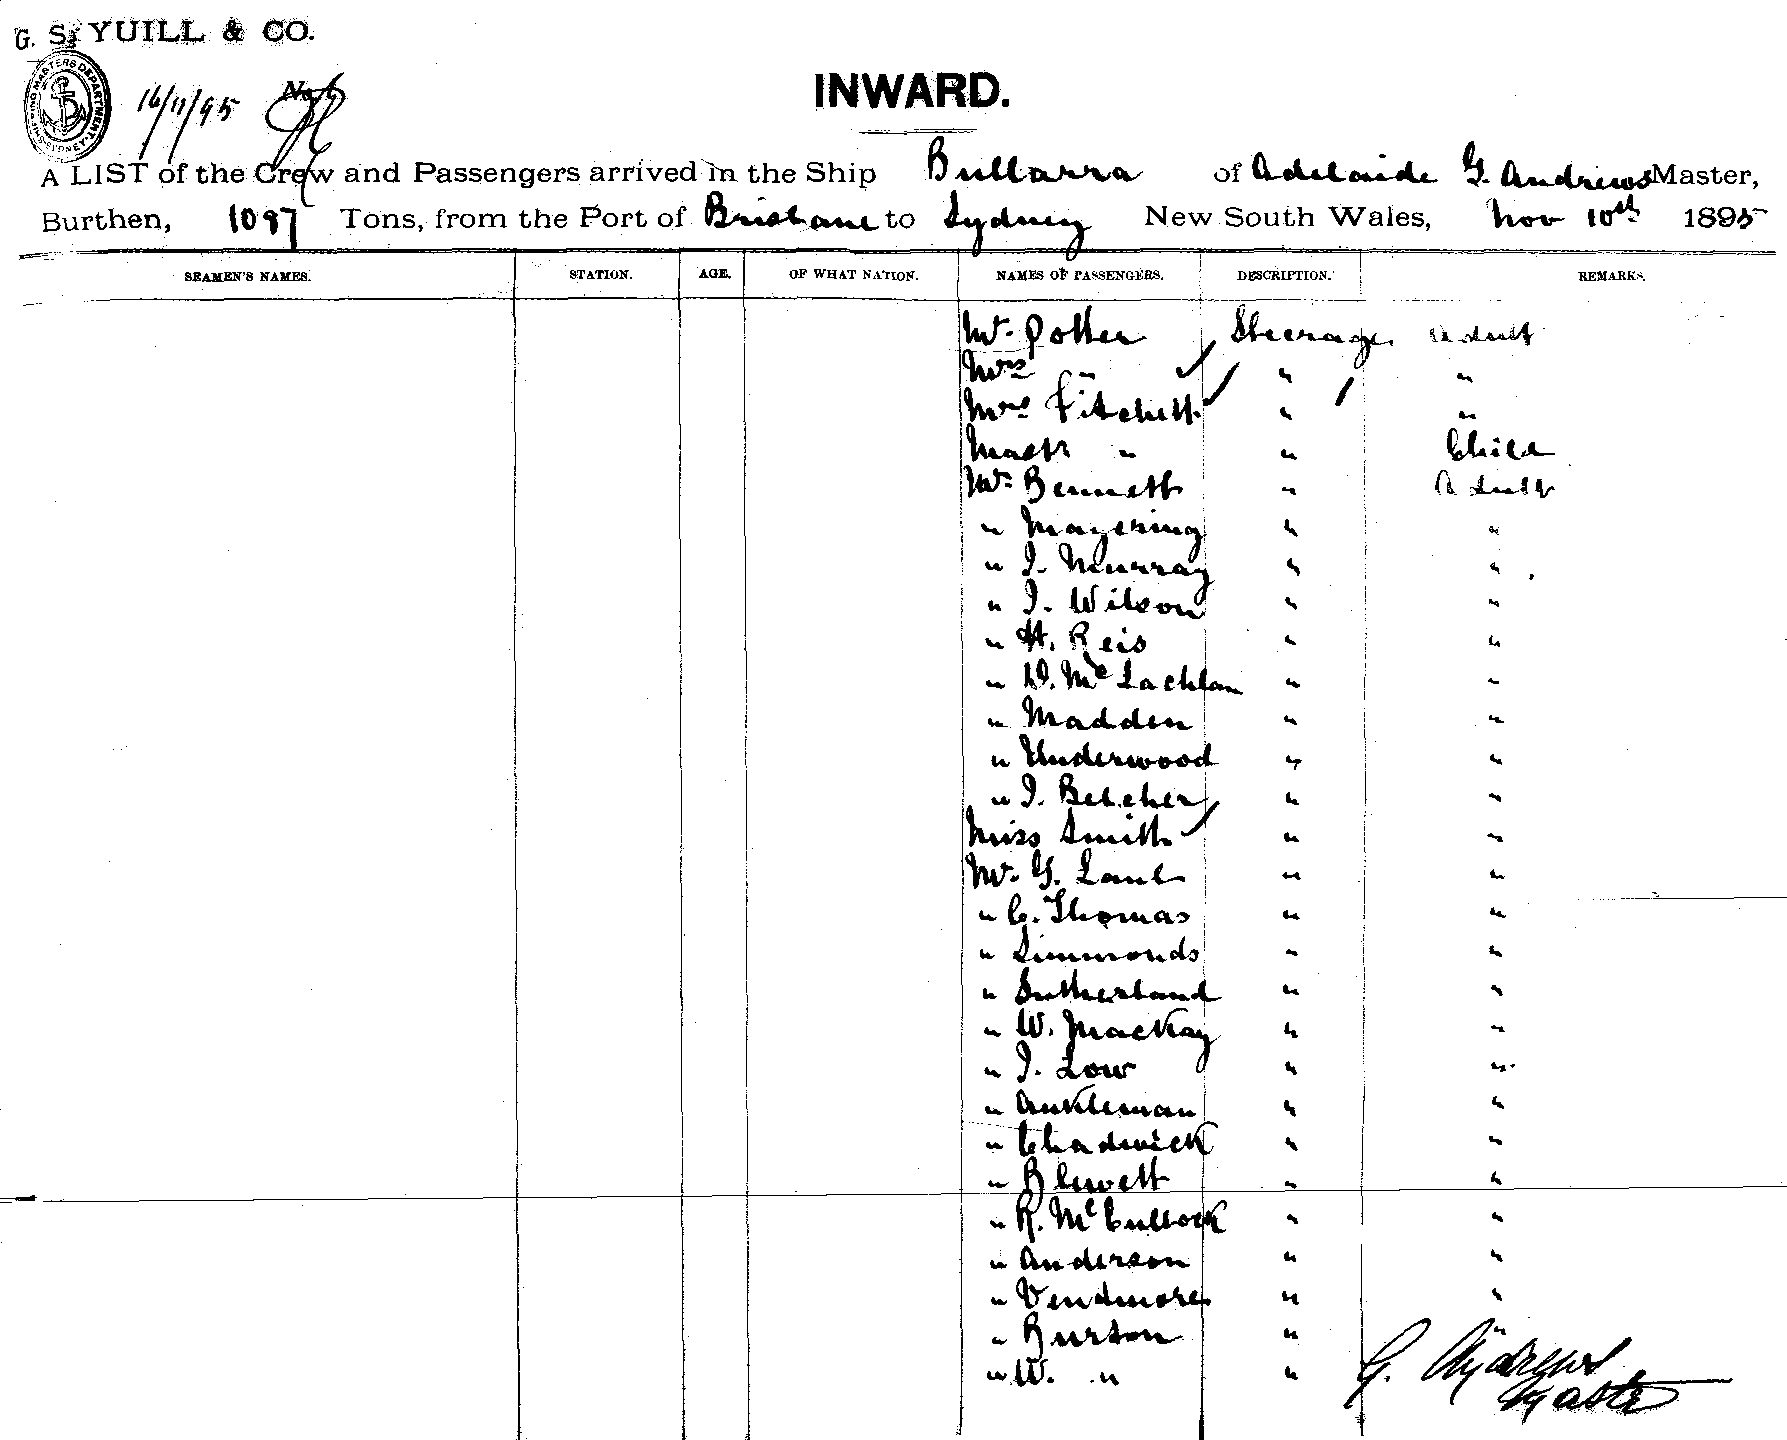 G. S. YUILL & CO.
SHIPPING MASTERS DEPARTMENT SYDNEY
16/11/95
INWARD.
A LIST of the Crew and Passengers arrived in the Ship Bullarra of Adelaide G. Andrews Master,
Burthen, 1097 Tons, from the Port of Brisbane to Sydney New South Wales, Nov 10th 1895
SEAMEN'S NAMES. STATION. AGE. OF WHAT NATION. NAMES OF PASSENGERS. DESCRIPTION. REMARKS.
Mr. Potter Steerage Adult
Mrs " " "
Mrs Fitchett " "
Mastr " " Child
Mr. Bennett " Adult
" Mayering " "
" J. Murray " "
" J. Wilson " "
" H. Reis " "
" D. McLachlan " "
" Madden " "
" Underwood " "
" J. Belcher " "
Miss Smith " "
Mr. G. Lamb " "
" C. Thomas " "
" Simmonds " "
" Sutherland " "
" W. MacKay " "
" J. Low " "
" Ankleman " "
" Chadwick " "
" Blewett " "
" R. McCullock " "
" Anderson " "
" Vendmore " "
" Burton " "
" W. " "
G. Andrews
Master